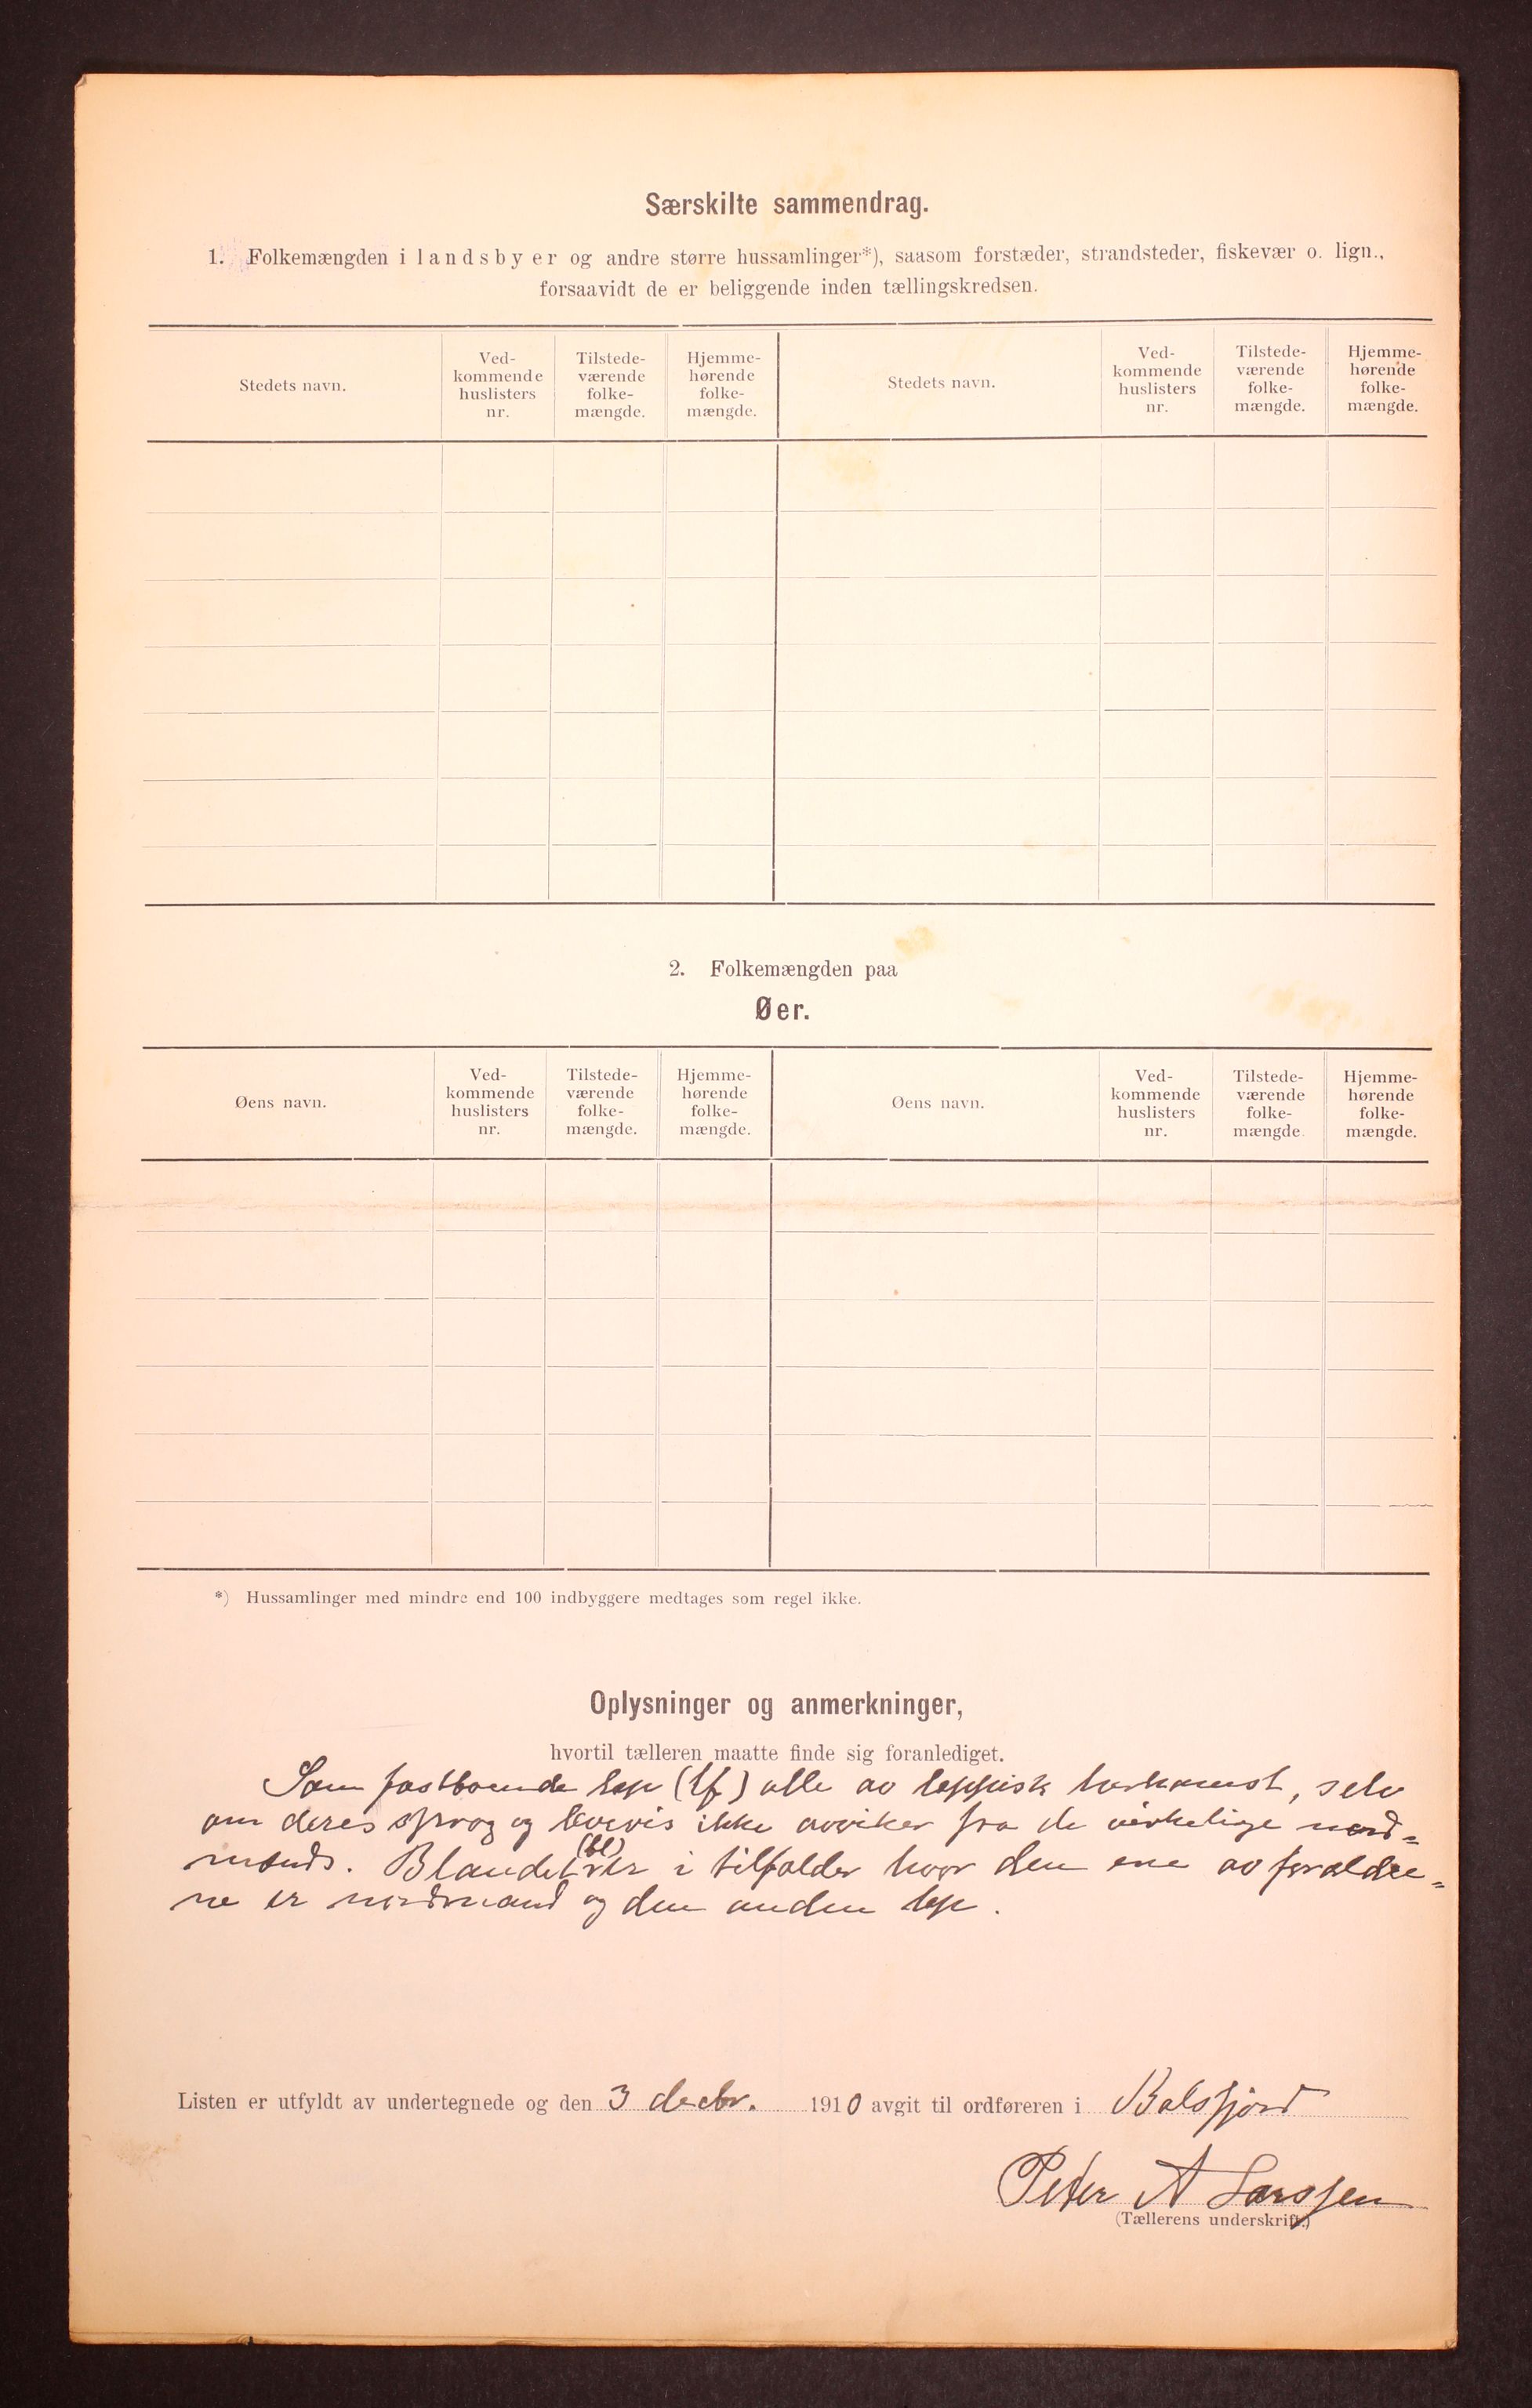 Særskilte sammendrag.
1. Folkemængden i landsbyer og andre større hussamlinger*), saasom forstæder, strandsteder, fiskevær o. lign.,
forsaavidt de er beliggende inden tællingskredsen.
Stedets navn.
Ved-
kommende
huslisters
nr.
Tilstede-
værende
folke-
mængde.
Hjemme-
hørende
folke-
mængde.
Stedets navn.
Ved-
kommende
huslisters
nr.
Tilstede-
værende
folke-
mængde.
Hjemme-
hørende
folke-
mængde.
2. Folkemængden paa
Øer.
Øens navn.
Ved-
kommende
huslisters
nr.
Tilstede-
værende
folke-
mængde.
Hjemme-
hørende
folke-
mængde.
Øens navn.
Ved-
kommende
huslisters
nr.
Tilstede-
værende
folke-
mængde
Hjemme-
hørende
folke-
mængde.
*) Hussamlinger med mindre end 100 indbyggere medtages som regel ikke.
Oplysninger og anmerkninger,
hvortil tælleren maatte finde sig foranlediget.
Som fastboende lap (lf) alle av lappisk herkomst, selv
om deres sprog og levevis ikke avviker fra de virkelige nord=
mænds. Blandet (bl) i tilfælder hvor den ene av forældre=
ne er nordmand og den anden lap.
Listen er utfyldt av undertegnede og den 3 decbr. 1910 avgit til ordføreren i Balsfjord
Peter A Larssen
(Tællerens underskrift.)